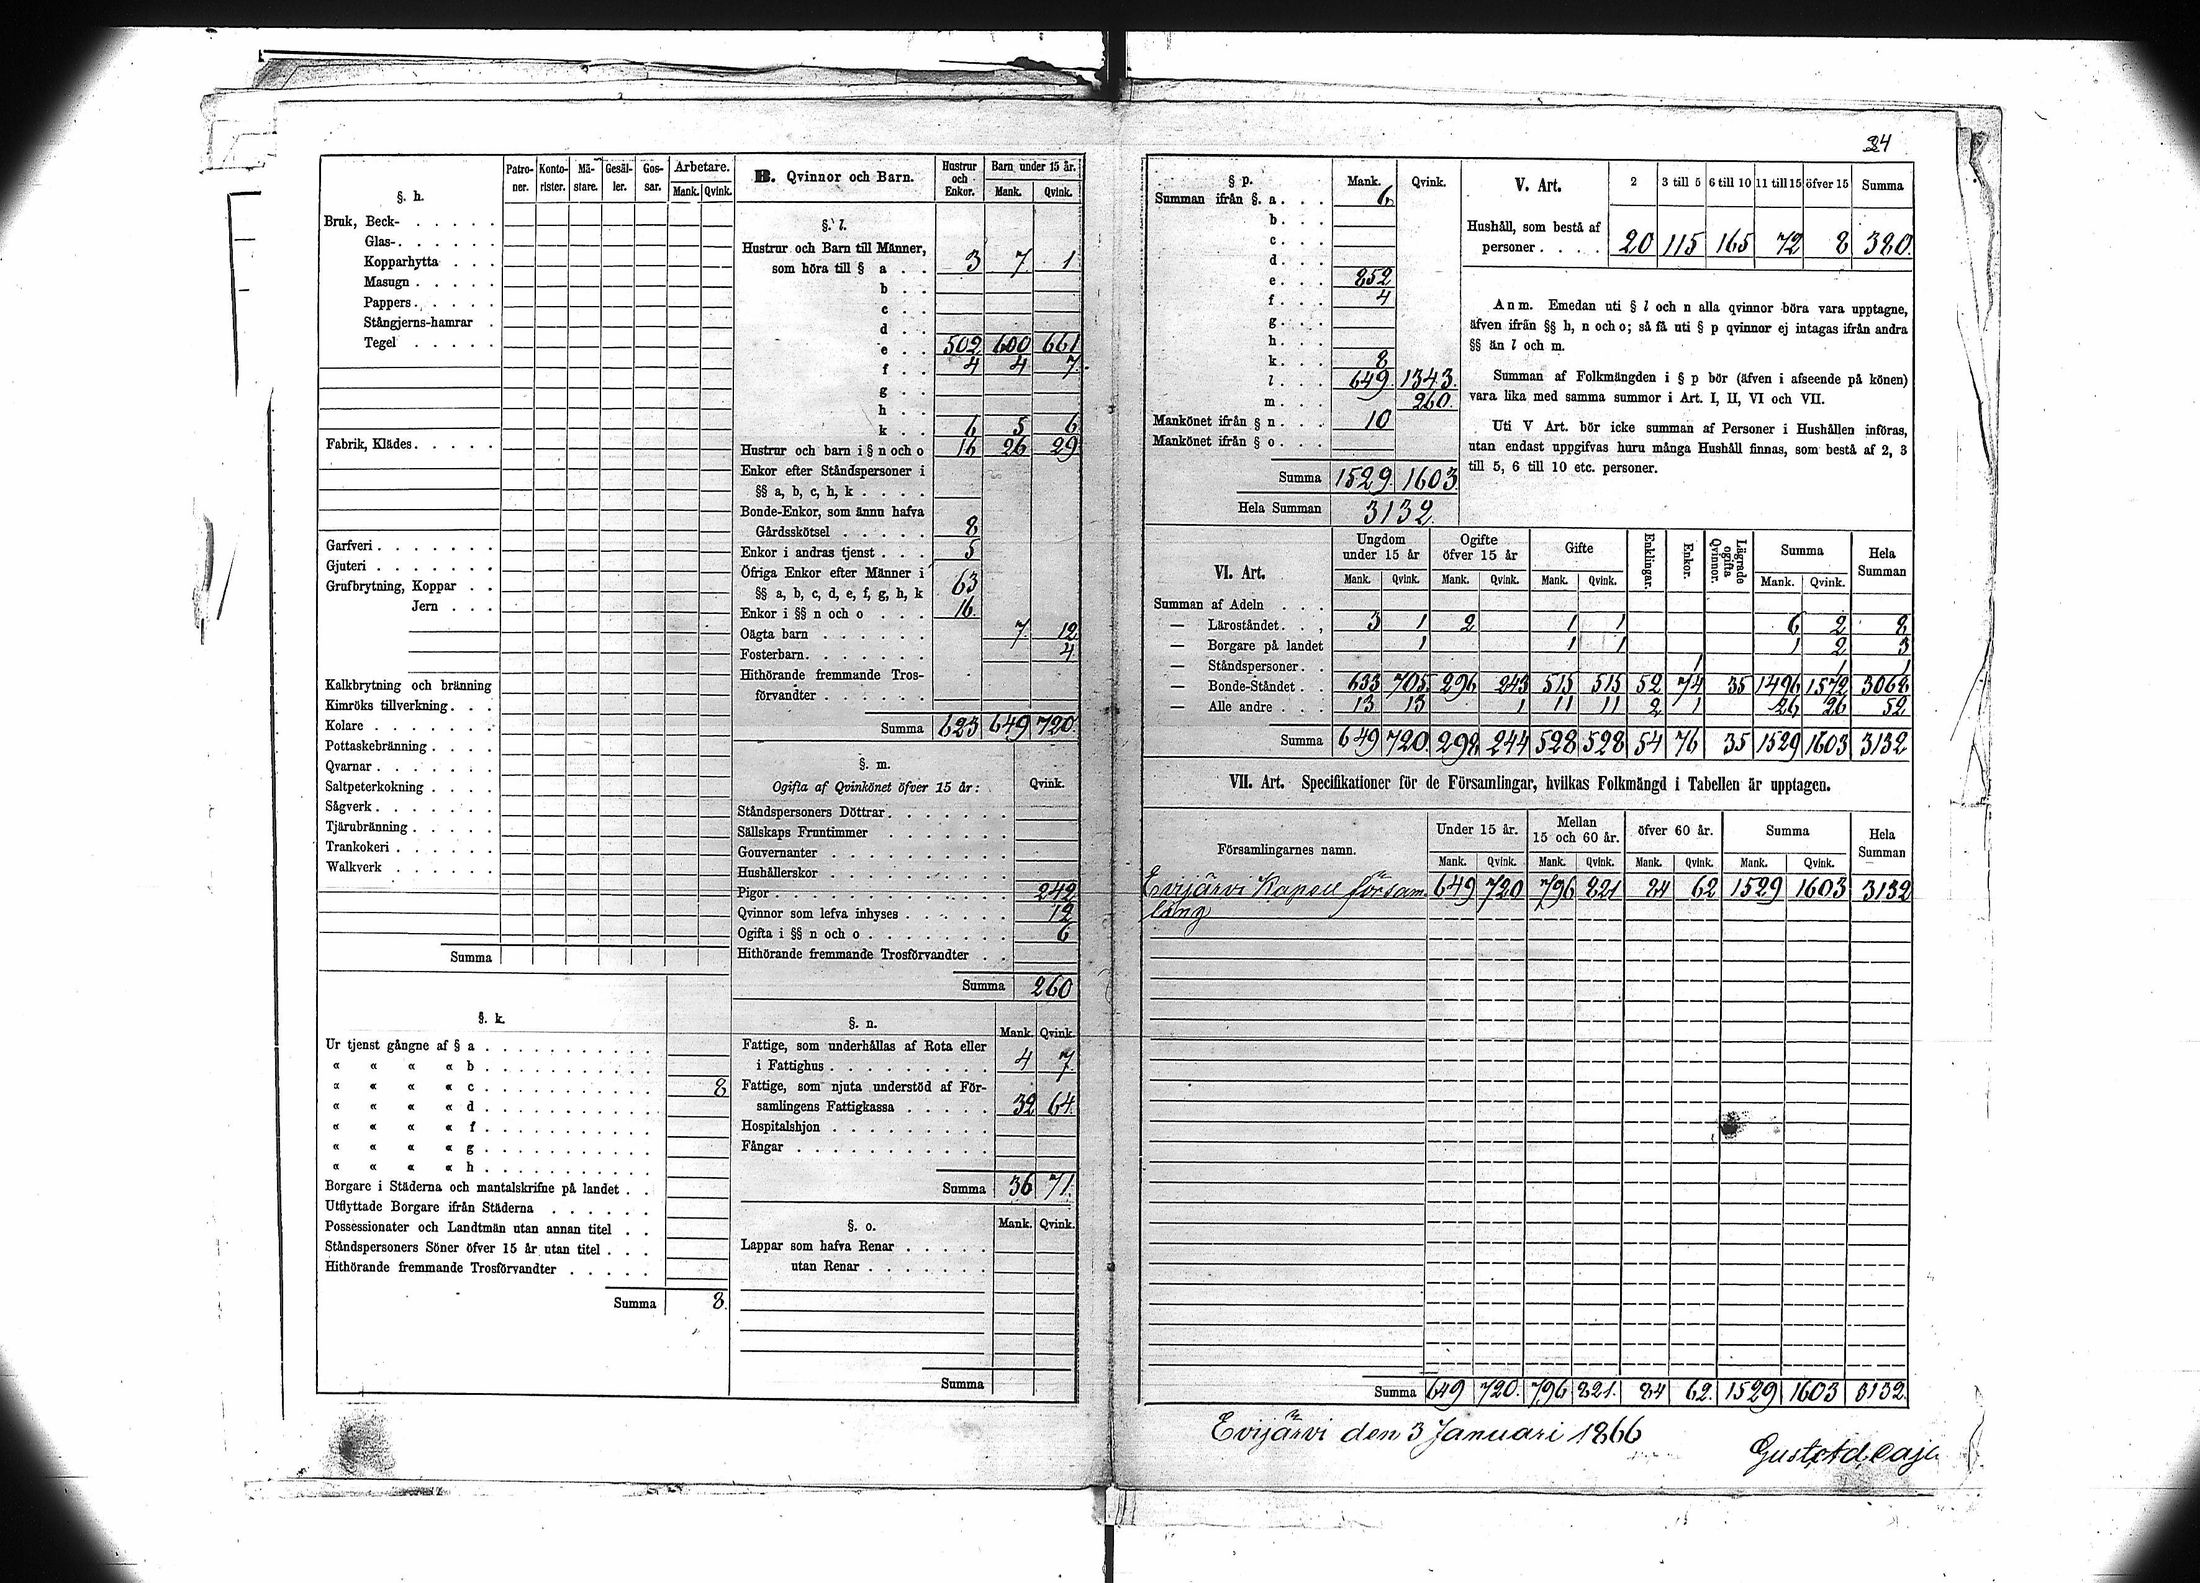 34
§. h.
Patroner. Kontorister. Mästare. Gesäller. Gossar. Arbetare. Mank. Qvink.
Bruk, Beck-
Glas-
Kopparhytta
Masugn
Pappers
Stångjerns-hamrar
Tegel
Fabrik, Klädes
Garfveri
Gjuteri
Grufbrytning, Koppar
Jern
Kalkbrytning och bränning
Kimröks tillverkning
Kolare
Pottaskebränning
Qvarnar
Saltpeterkokning
Sågverk
Tjärubränning
Trankokeri
Walkverk
Summa
§. k.
Ur tjenst gångne af § a
« « « « b
« « « « c 8
« « « « d
« « « « f
« « « « g
« « « « h
Borgare i Städerna och mantalskrifne på landet
Utflyttade Borgare ifrån Städerna
Possessionater och Landtmän utan annan titel
Ståndspersoners Söner öfver 15 år utan titel
Hithörande fremmande Trosförvandter
Summa 8.
B. Qvinnor och Barn. Hustrur och Enkor. Barn under 15 år. Mank. Qvink.
§. l.
Hustrur och Barn till Männer,
som höra till § a 3 7 1
b
c
d
e 502 600 661
f 4 4 7.
g
h
k 6 5 6
Hustrur och barn i § n och o 16 26 29
Enkor efter Ståndspersoner i
§§ a, b, c, h, k
Bonde-Enkor, som ännu hafva
Gårdsskötsel 8
Enkor i andras tjenst 5
Öfriga Enkor efter Männer i
§§ a, b, c, d, e, f, g, h, k 63
Enkor i §§ n och o 16
Oägta barn 7 12
Fosterbarn 4
Hithörande fremmande Tros-
förvandter
Summa 623 649 720
§. m.
Ogifta af Qvinkönet öfver 15 år: Qvink.
Ståndspersoners Döttrar
Sällskaps Fruntimmer
Gouvernanter
Hushållerskor
Pigor 242
Qvinnor som lefva inhyses 12
Ogifta i §§ n och o 6
Hithörande fremmande Trosförvandter
Summa 260
§. n. Mank. Qvink.
Fattige, som underhållas af Rota eller
i Fattighus 4 7
Fattige, som njuta understöd af För-
samlingens Fattigkassa 32 64
Hospitalshjon
Fångar
Summa 36 71.
§. o. Mank. Qvink.
Lappar som hafva Renar
utan Renar
Summa
§ p. Mank. Qvink.
Summan ifrån §. a 6
b
c
d
e 852
f 4
g
h
k 8
l 649 1343
m 260
Mankönet ifrån § n 10
Mankönet ifrån § o
Summa 1529 1603
Hela Summan 3132
V. Art. 2 3 till 5 6 till 10 11 till 15 öfver 15 Summa
Hushåll, som bestå af
personer 20 115 165 72 8 380.
Anm. Emedan uti § l och n alla qvinnor böra vara upptagne,
äfven ifrån §§ h, n och o; så få uti § p qvinnor ej intagas ifrån andra
§§ än l och m.
Summan af Folkmängden i § p bör (äfven i afseende på könen)
vara lika med samma summor i Art. I, II, VI och VII.
Uti V Art. bör icke summan af Personer i Hushållen införas,
utan endast uppgifvas huru många Hushåll finnas, som bestå af 2, 3
till 5, 6 till 10 etc. personer.
VI. Art. Ungdom under 15 år Ogifte öfver 15 år Gifte Enklingar. Enkor. Lägrade ogifta Qvinnor. Summa Hela Summan
Mank. Qvink. Mank. Qvink. Mank. Qvink. Mank. Qvink.
Summan af Adeln
— Läroståndet 3 1 2 1 1 6 2 8
— Borgare på landet 1 1 1 1 2 3
— Ståndspersoner 1 1 1
— Bonde-Ståndet 633 705 296 243 515 515 52 74 35 1496 1572 3068
— Alle andre 13 13 1 11 11 2 1 26 26 52
Summa 649 720 298 244 528 528 54 76 35 1529 1603 3132
VII. Art. Specifikationer för de Församlingar, hvilkas Folkmängd i Tabellen är upptagen.
Församlingarnes namn. Under 15 år. Mellan 15 och 60 år. öfver 60 år. Summa Hela Summan
Mank. Qvink. Mank. Qvink. Mank. Qvink. Mank. Qvink.
Evijärvi Kapell försam 649 720 796 821 84 62 1529 1603 3132
ling
Summa 649 720. 796 821. 84 62. 1529 1603 3132.
Evijärvi den 3 Januari 1866